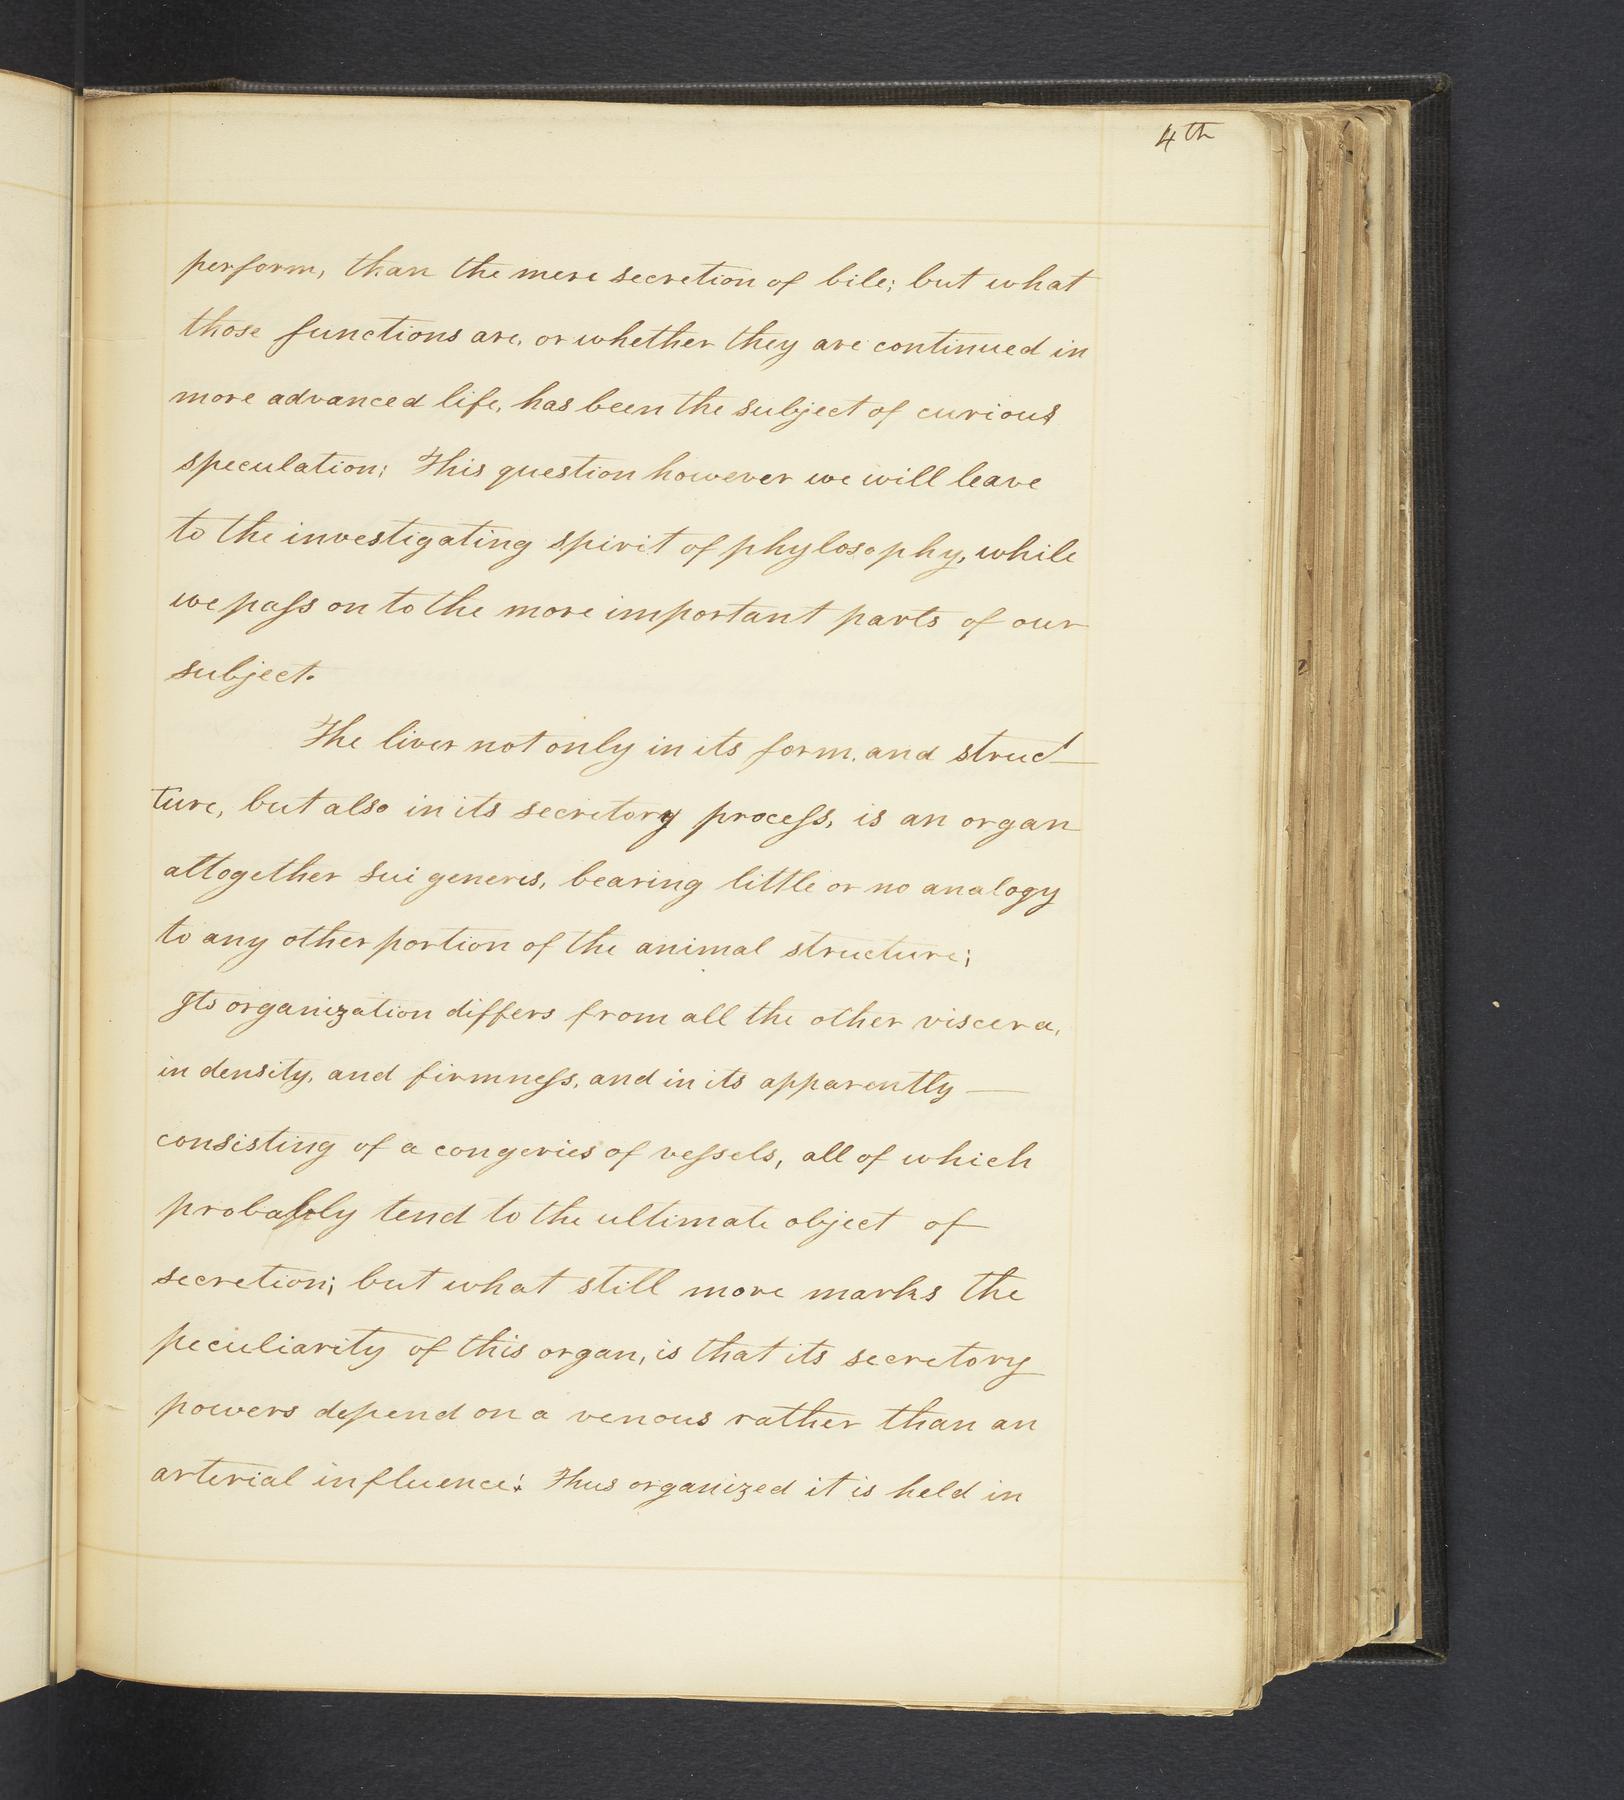 4th
perform, than the mere secretion of bile; but what
those functions are, or whether they are continued in
more advanced life, has been the subject of curious
speculation; This question however we will leave
to the investigating spirit of phylosophy, while
we paſs on to the more important parts of our
subject.
The liver not only in its form, and struct
ture, but also in its secretory proceſs, is an organ
altogether sui generis, bearing little or no analogy
to any other portion of the animal structure;
Its organization differs from all the other viscera,
in density, and firmneſs, and in its apparently —
consisting of a congeries of veſsels, all of which
probably tend to the ultimate object of
secretion; but what still more marks the
peculiarity of this organ, is that its secretory
powers depend on a venous rather than an
arterial influence: Thus organized it is held in